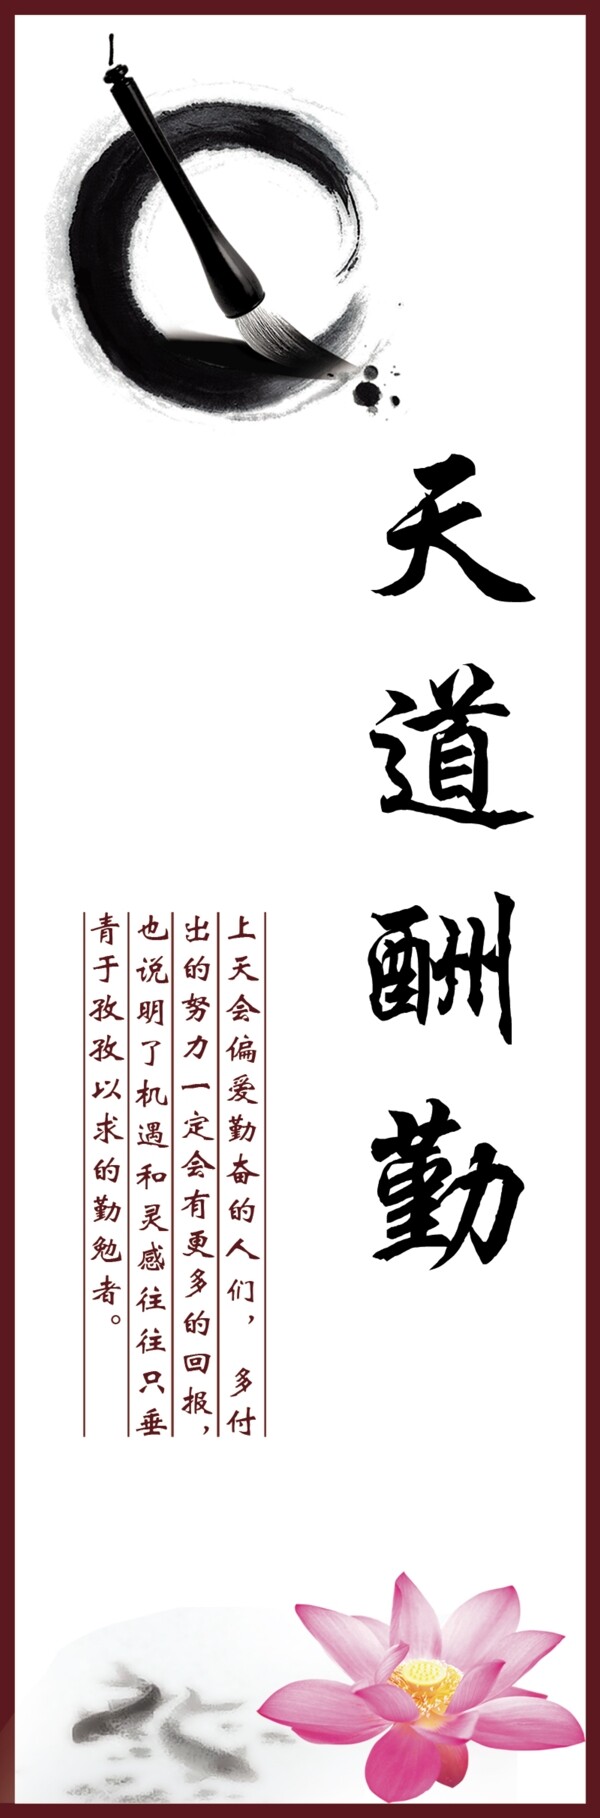 天道酬勤
上天会偏爱勤奋的人们，多付
出的努力一定会有更多的回报，
也说明了机遇和灵感往往只垂
青于孜孜以求的勤勉者。